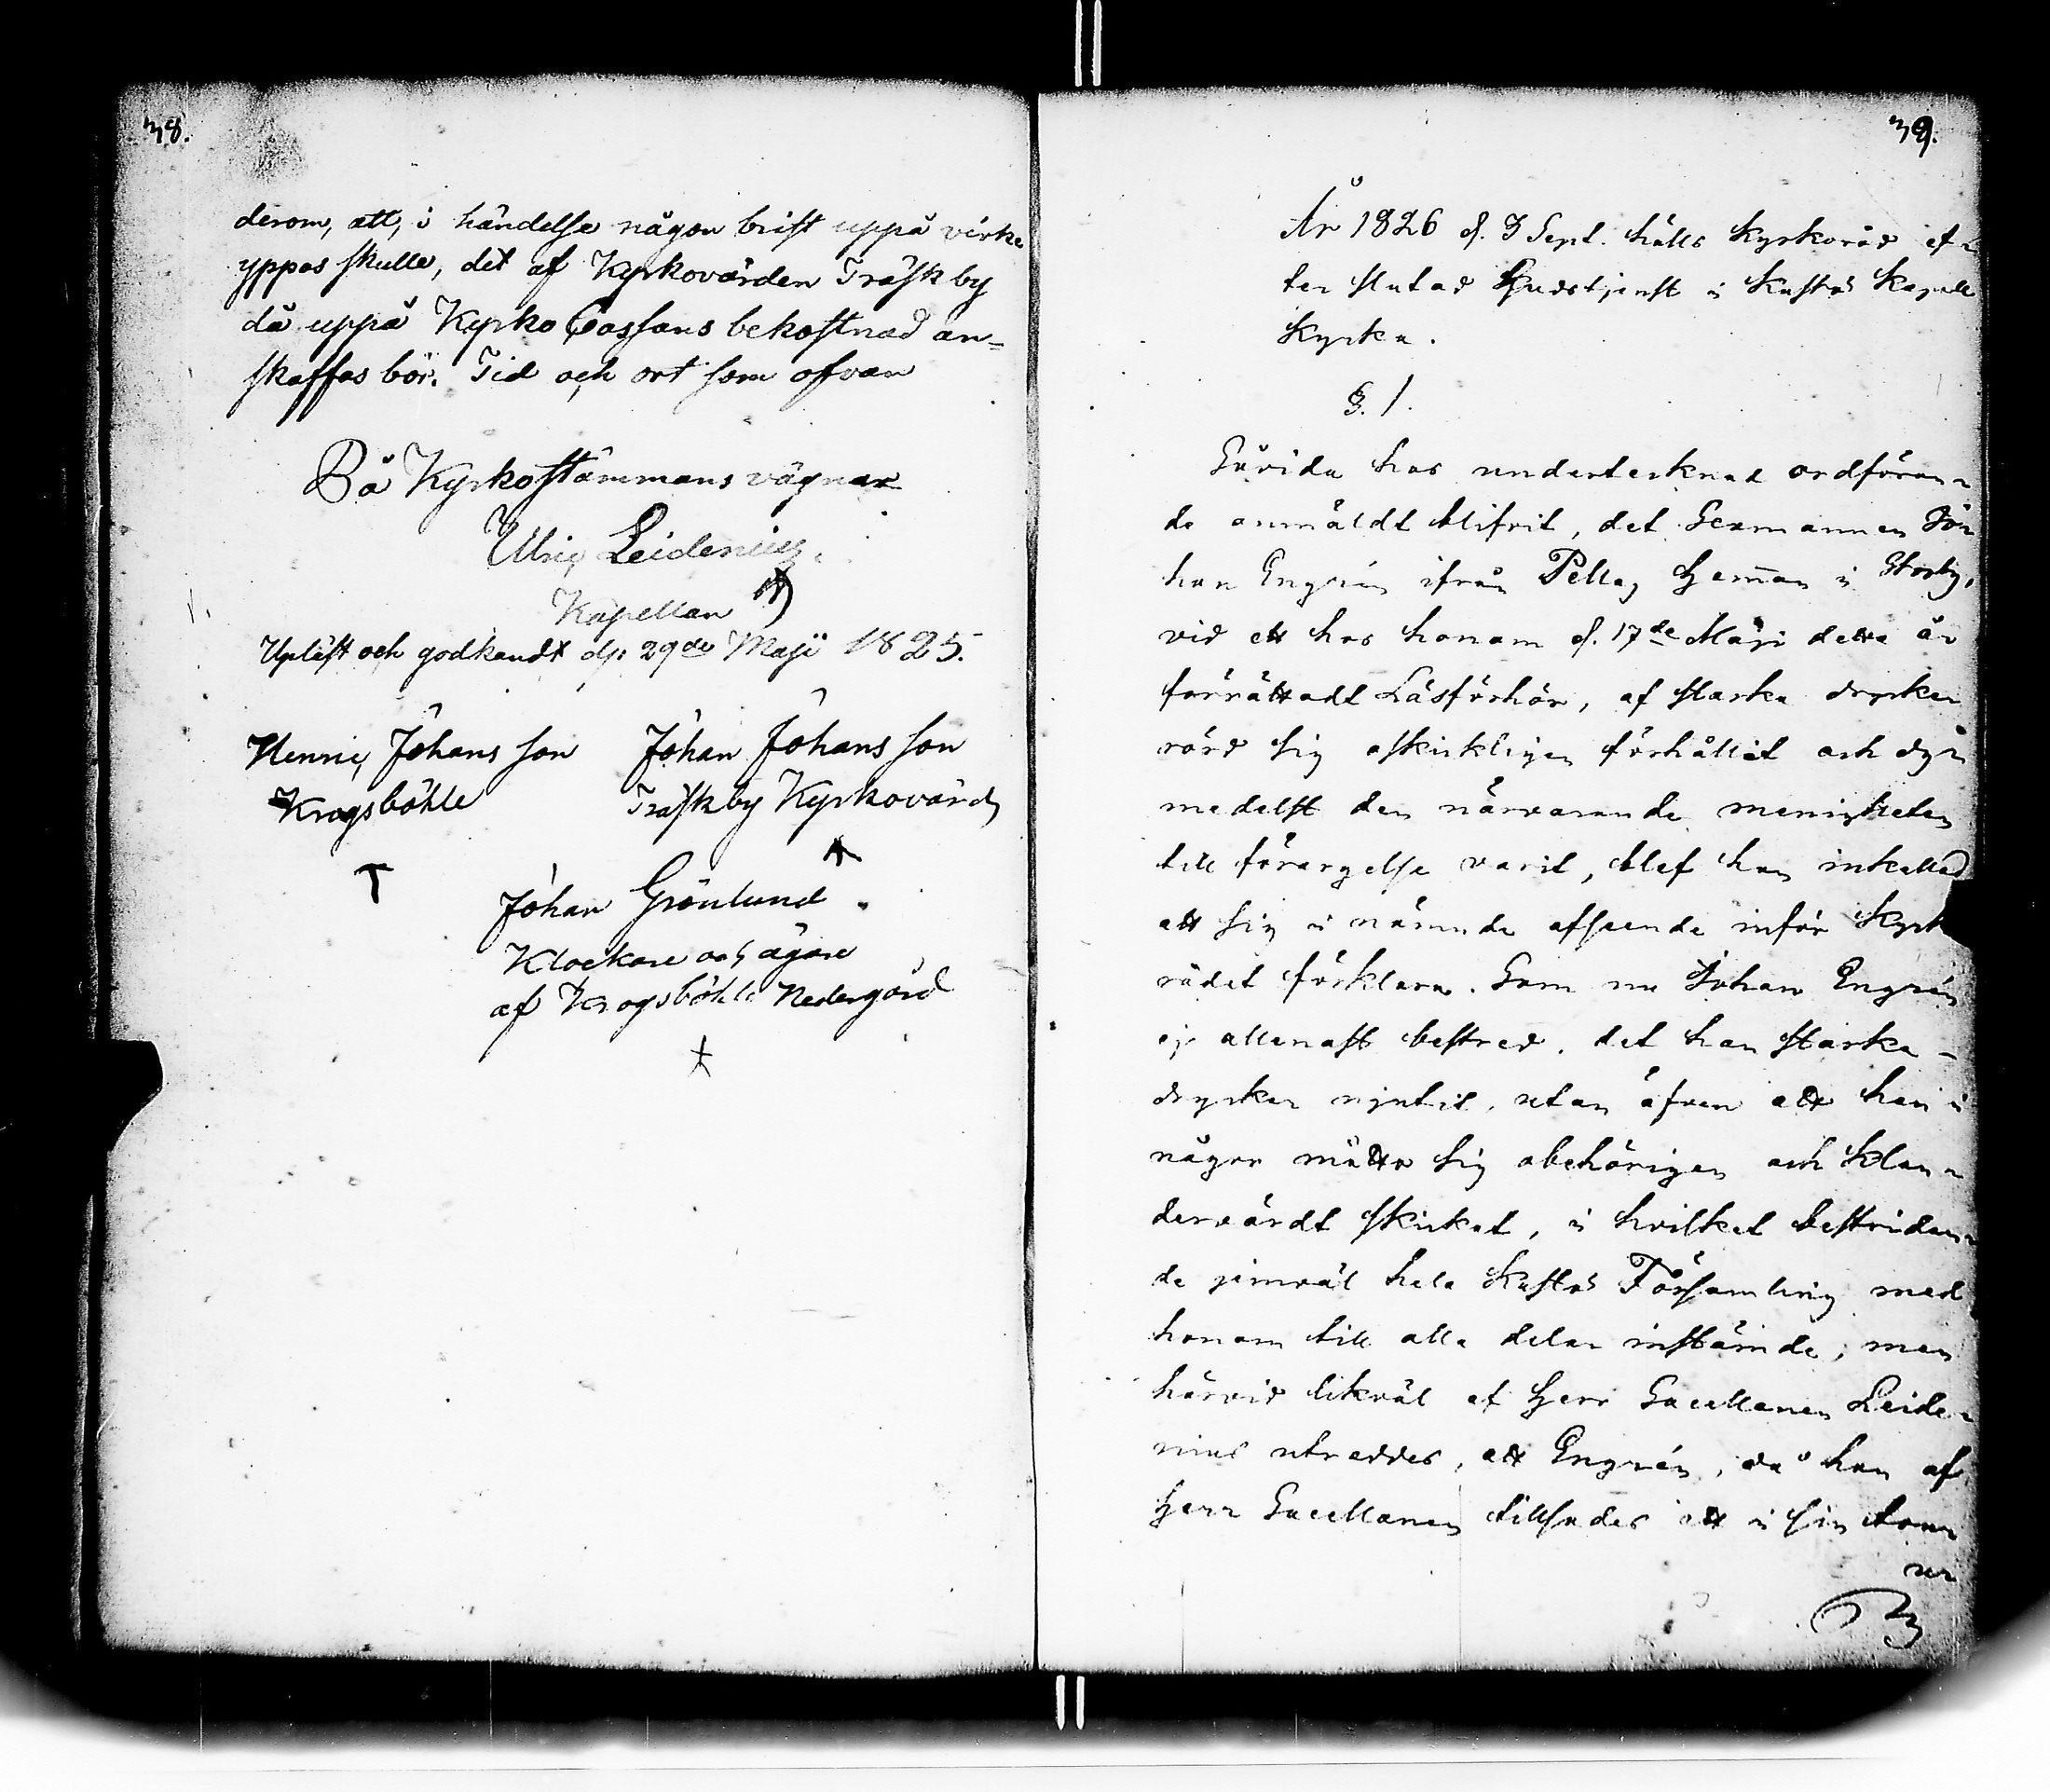 38.
derom, att, i händelse någon brist uppå virke
yppas skulle, det af Kyrkovärden Träskby
då uppå Kyrko Cassans bekostnad an=
skaffas bör. Tid och ort som ofvan
På Kyrkostämmans vägnar
Ulric Leidenius.
Kapellan
Upläst och godkändt d. 29de Maji 1825.
Henric Johans son Johan Johans son
Krogsböhle Träskby Kyrkovärd
Johan Grönlund.
Klockare och ägare
af Krogsböhle Nedergård
39.
År 1826 d. 3 Sept. hölls Kyrkoråd ef-
ter slutad Gudstjenst i Kustö Kapell
Kyrka.
§. 1.
Såvida hos undertecknad ordföran-
de anmäldt blifvit, det Sexmannen Jo-
han Engrén ifrån Pellas Hemman i Storby,
vid ett hos honom d. 17de Maji detta år
förrättadt Läsförhör, af starka drycker
rörd sig oskickligen förhållit och dy-
medelst den närvarande menigheten
till förargelse varit, blef han inkallad
att sig i nämnde afseende inför Kyrk
rådet förklara. Som nu Johan Engrén
ej allenast bestred, det han starka-
drycker njutit, utan äfven att han i
någon måtto sig obehörigen och klan-
dervärdt skickat, i hvilket bestridan-
de jemväl hela Kustö Församling med
honom till alla delar instämde, men
härvid likväl af Herr Sacellanen Leide-
nius utreddes, att Engrén, då han af
Herr Sacellanen tillsades att i sin tour